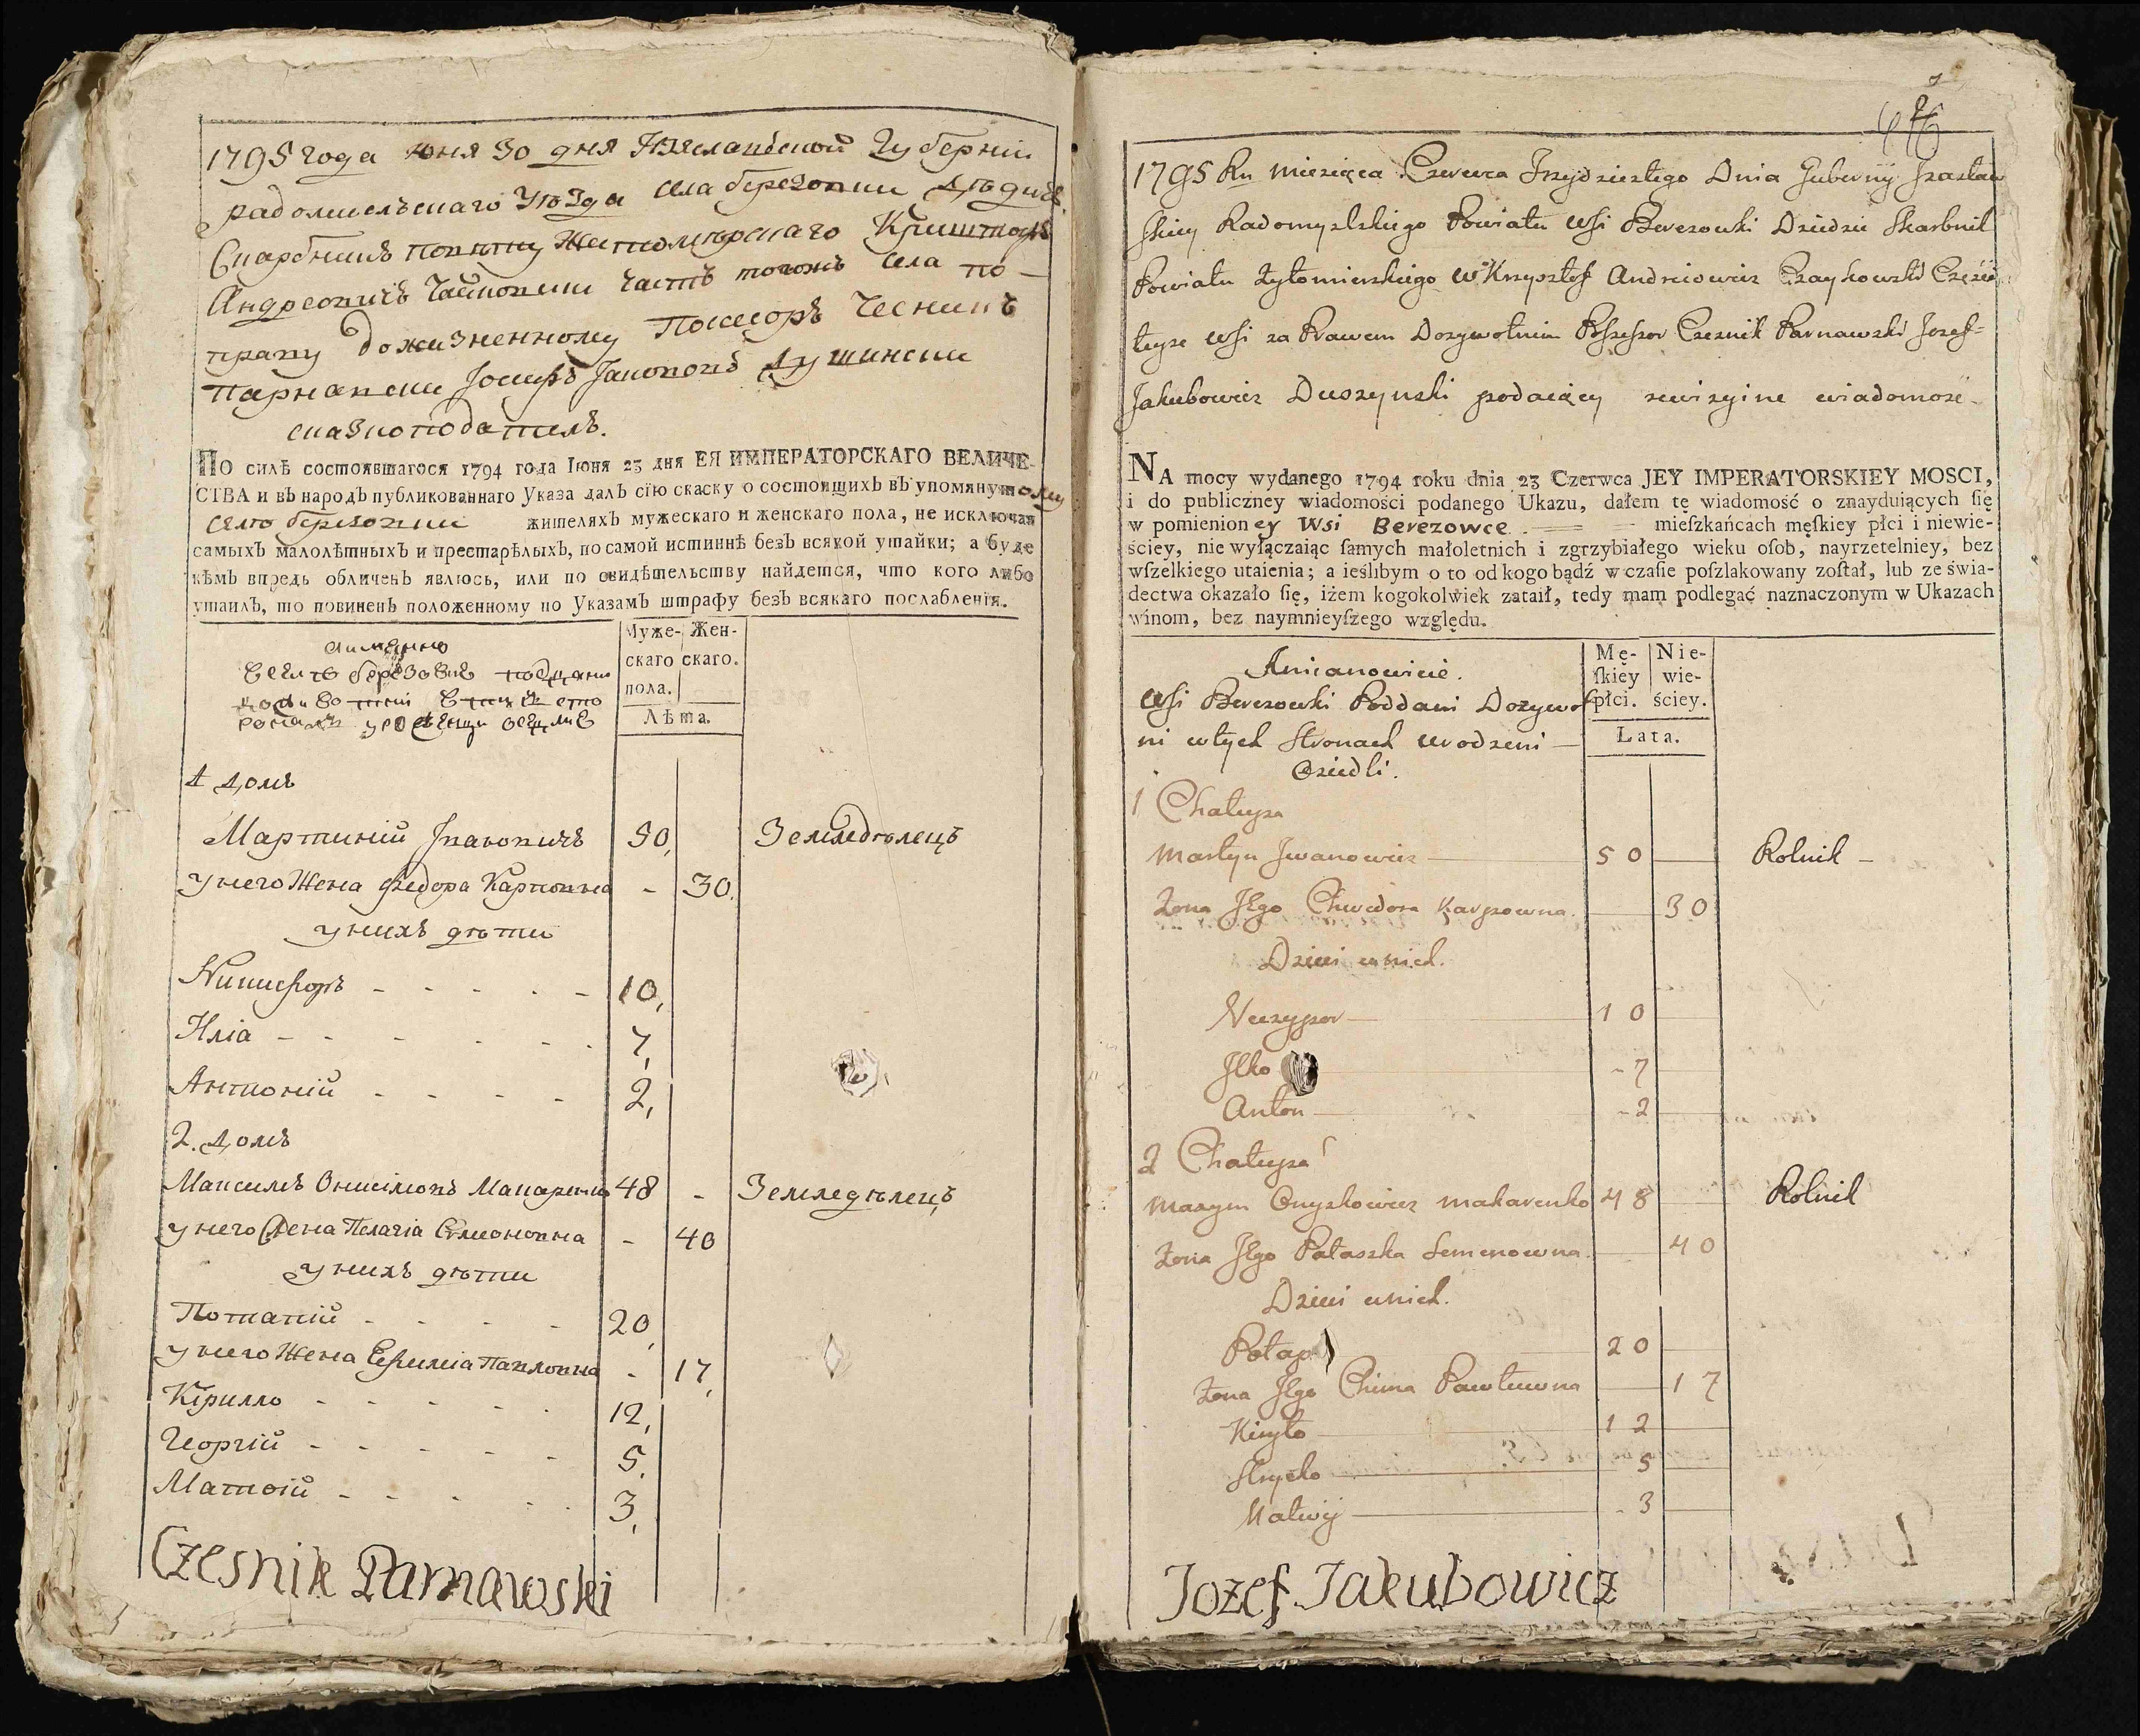 1795 года юня 30 дня Изяславской Губерніи
радомысльскаго Уѣзда села березовки Дѣдичъ
Скарбникъ повѣту Житомирскаго Криштофъ
Андреовичъ Чайковски часть тогожъ села по
праву дожизненному Посесоръ Чесникъ
Парнавски Іосифъ Іаковов Душински
сказкоподатель.
По силѣ состоявшагося 1794 года Іюня 23 дня ЕЯ ИМПЕРАТОРСКАГО ВЕЛИЧЕ-
СТВА и въ народъ публикованнаго Указа далъ сію скаску о состоящихъ въ упомянутому
селѣ березовки жителяхъ мужескаго и женскаго пола, не исключая
самыхъ малолѣтныхъ и престарѣлыхъ, по самой истиннѣ безъ всякой утайки; а буде
кѣмъ впредь обличенъ явлюсь, или по свидѣтельству найдется, что кого либо
утаилъ, то повиненъ положенному по Указамъ штрафу безъ всякаго послабленія.
Аимянно
Веселѣ березовкѣ подданн
Муже- Жен-
скаго скаго.
пола.
Лѣта.
1 домъ
Мартиній Івановичъ 50, Земледѣлецъ
у него Жена Федора Карповна - 30.
у нихъ дѣти
Никифоръ - - - - - 10,
Илія - - - - - - 7,
Антоній - - - - 2,
2. домъ
Максимъ Онисімовъ Макаренко 48 - Земледѣлецъ
у него Жена Пелагіа Сѣмоновна - 40
у нихъ дѣти
Потапій - - - - 20,
у него Жена Евфиміа Павловна - 17,
Кірилло - - - - - 12,
Георгій - - - - - 5.
Матвій - - - - - 3,
Czesnik Parnawski
1795 Ru Miesięca Czerwca Trzydziestego Dnia Gubernij Izasław
skiey Radomyslskiego Powiatu Wsi Berezowki Dziedzic Skarbnik
Powiatu Zytomirskiego W Krzysztof Andreiowicz Czaykowski Części
teyze Wsi za Prawem Dozywotnim Possessor Czesnik Parnawski Jozef-
Jakubowicz Duszynski podaiący rewizyine wiadomosc-
NA mocy wydanego 1794 roku dnia 23 Czerwca JEY IMPERATORSKIEY MOSCI,
i do publiczney wiadomości podanego Ukazu, dałem tę wiadomość o znayduiących ſię
w pomienioney Wsi Berezowce mieſzkańcach męſkiey płci i niewie-
ściey, nie wyłączaiąc ſamych małoletnich i zgrzybiałego wieku oſob, nayrzetelniey, bez
wſzelkiego utaienia; a ieślibym o to od kogo bądź w czaſie poſzlakowany zoſtał, lub ze świa-
dectwa okazało ſię, iżem kogokolwiek zataił, tedy mam podlegać naznaczonym w Ukazach
winom, bez naymnieyſzego względu.
Amianowicie.
Wsi Berezowki Poddani Dozywot
ni wtych Stronach urodzeni
Osiedli.
Mę- Nie-
ſkiey wie-
płci. ściey.
Lata.
1 Chałupa
Martyn Jwanowicz 50 Rolnik -
Zona Jego Chwedora Karpowna. 30
Dzieci unich.
Neczypor 10
Jlko - 7
Anton - 2
2 Chałupa
Maxym Onyskowicz Makarenko 48 Rolnik
Zona Jego Pałaszka Semenowna 40
Dzieci unich.
Potap 20
Zona Jego Chima Pawłowna 17
Kiryło 12
Hrycko 5
Matwij - 3
Jozef Jakubowicz